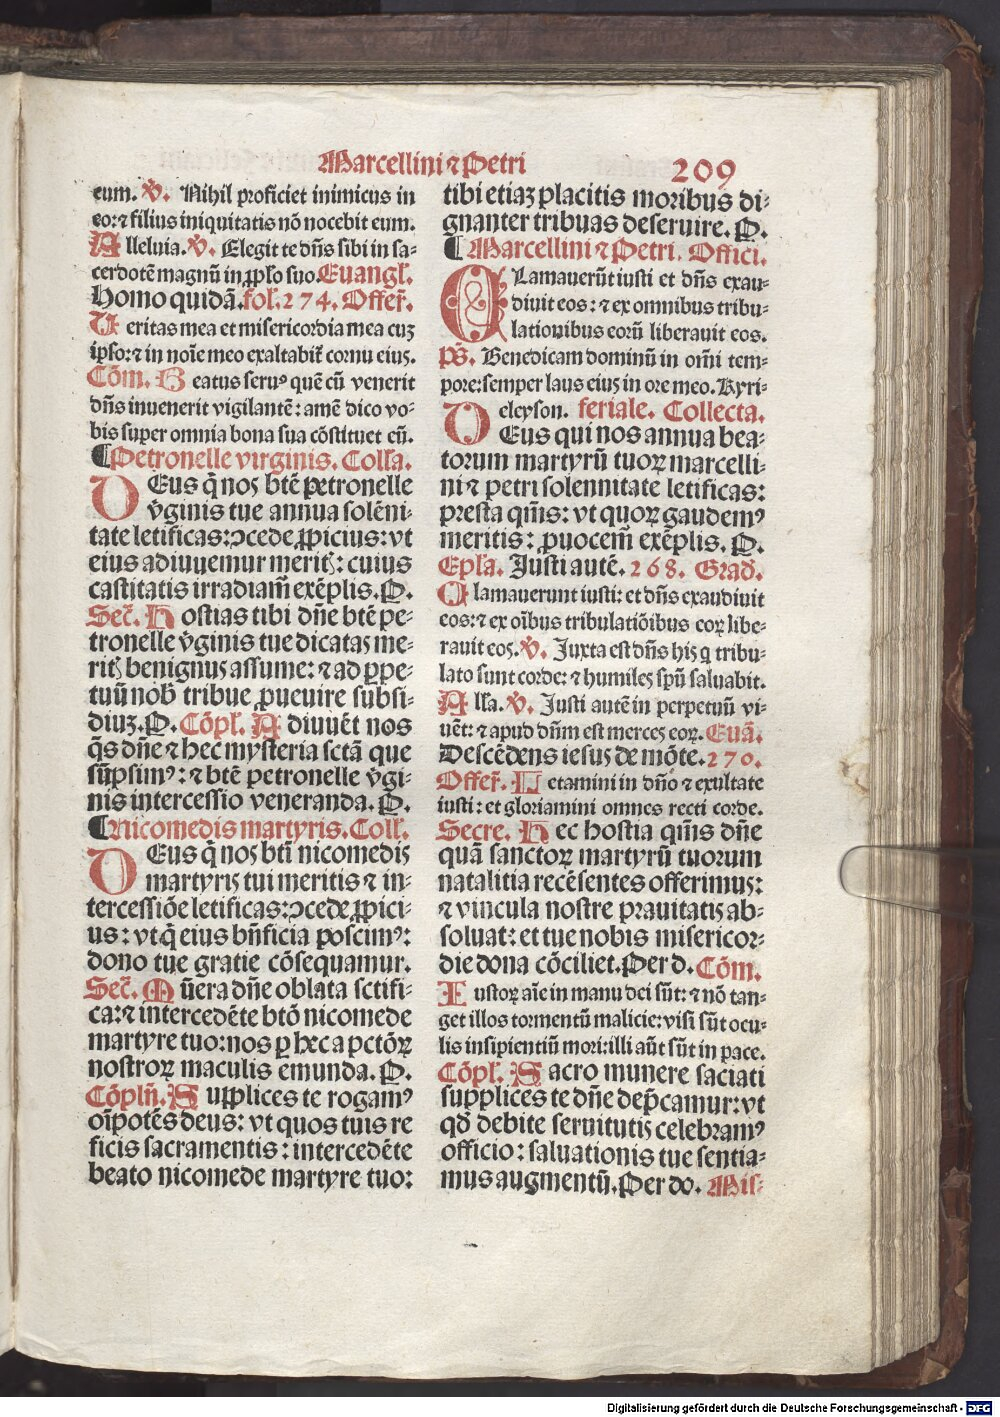 Marcellini ⁊ Petri 209
eum. V̇. Nihil proficiet inimicus in
eo:⁊ filius iniquitatis nō nocebit eum.
Alleluia. V̇. Elegit te dn̄s sibi in sa-
cerdotē magnū in ꝓp̄lo suo. Euangl̄.
Homo quidā. fol. 274. Offer̄.
Ueritas mea et misericordia mea cuꝫ
ipso:⁊ in noīe meo exaltabit̄ cornu eius.
Cōm. Beatus seruꝰ quē cū venerit
dn̄s inuenerit vigilantē: amē dico vo-
bis super omnia bona sua cōstituet eū.
Petronelle virginis. Coll̄a.
DEus q̄ nos bt̄e petronelle
v̄ginis tue annua solēni-
tate letificas: ꝯcede ꝓpicius: vt
eius adiuuemur meritꝭ: cuius
castitatis irradiam̄ exēplis. P.
Sec̄. Hostias tibi dn̄e bt̄e pe-
tronelle v̄ginis tue dicatas me-
ritꝭ benignus assume: ⁊ ad ꝑpe-
tuū nob̄ tribue ꝓueuire subsi-
diuꝫ. P. Cōpl̄. Adiuuēt nos
q̄s dn̄e ⁊ hec mysteria sctā que
sūpsimꝰ: ⁊ bt̄e petronelle v̄gi-
nis intercessio veneranda. P.
Nicomedis martyris. Coll̄.
DEus q̄ nos bt̄i nicomedis
martyris tui meritis ⁊ in-
tercessiōe letificas: ꝯcede ꝓpici-
us: vt q̄ eius bn̄ficia poscimꝰ:
dono tue gratie cōsequamur.
Sec̄. Mūera dn̄e oblata sctifi-
ca:⁊ intercedēte btō nicomede
martyre tuo: nos ꝑ hec a pctōꝝ
nostroꝝ maculis emunda. P.
Cōpln̄. Supplices te rogamꝰ
oīpotēs deus: vt quos tuis re
ficis sacramentis: intercedēte
beato nicomede martyre tuo:
tibi etiaꝫ placitis moribus di-
gnanter tribuas deseruire. P.
Marcellini ⁊ Petri. Offici.
CLamauerūt iusti et dn̄s exau-
diuit eos: ⁊ ex omnibus tribu-
lationibus eorū liberauit eos.
Ps̄. Benedicam dominū in om̄i tem-
pore: semper laus eius in ore meo. Kyri-
eleyson. feriale. Collecta.
DEus qui nos annua bea-
torum martyrū tuoꝝ marcelli-
ni ⁊ petri solennitate letificas:
presta qm̄s: vt quoꝝ gaudemꝰ
meritis: ꝓuocem̄ exēplis. P.
Epl̄a. Justi autē. 268. Grad̄.
Clamauerunt iusti: et dn̄s exaudiuit
eos:⁊ ex oībus tribulatiōibus eoꝝ libe-
rauit eos. V̇. Juxta est dn̄s his q tribu-
lato sunt corde: ⁊ humiles sp̄u saluabit.
All̄a. V̇. Justi autē in perpetuū vi-
uēt: ⁊ apud dn̄m est merces eoꝝ. Euā.
Descēdens iesus de mōte. 270.
Offer̄. Letamini in dn̄o ⁊ exultate
iusti: et gloriamini omnes recti corde.
Secre. Hec hostia qm̄s dn̄e
quā sanctoꝝ martyrū tuorum
natalitia recēsentes offerimus:
⁊ vincula nostre prauitatis ab-
soluat: et tue nobis misericor-
die dona cōciliet. Per d. Cōm.
Iustoꝝ aīe in manu dei sūt: ⁊ nō tan-
get illos tormentū malicie: visi sūt ocu-
lis insipientiū mori: illi aūt sūt in pace.
Cōpl̄. Sacro munere saciati
supplices te dn̄e dep̄camur: vt
qd̄ debite seruitutis celebramꝰ
officio: saluationis tue sentia-
mus augmentū. Per do. Mis-
Digitalisierung gefördert durch die Deutsche Forschungsgemeinschaft - DFG